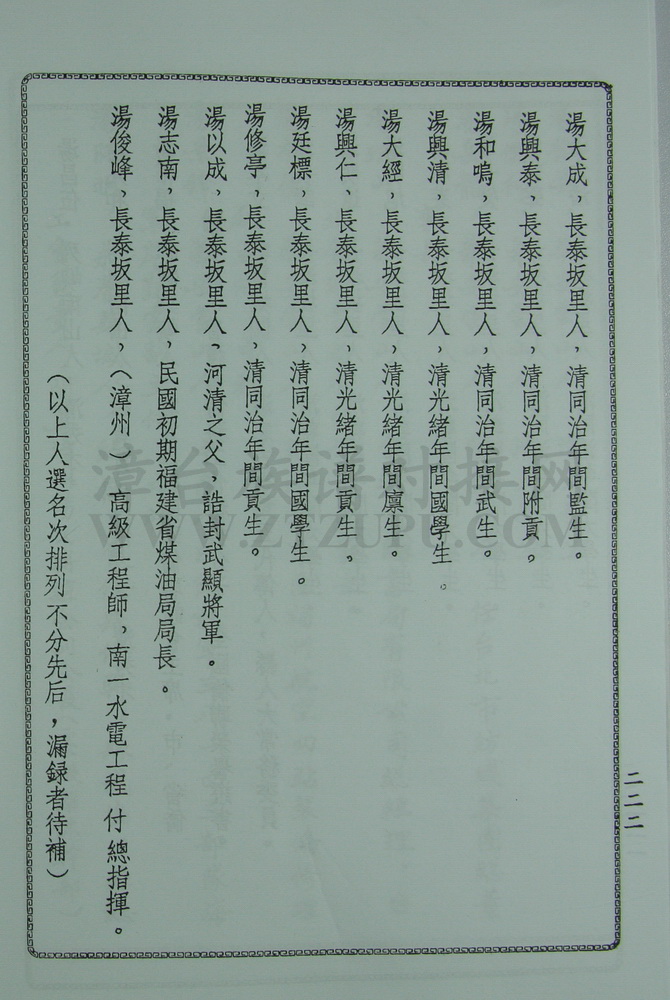 湯大成，長泰坂里人，清同治年間監生。
湯興泰，長泰坂里人，清同治年間附貢。
湯和鳴，長泰坂里人，清同治年間武生。
湯興清，長泰坂里人，清光緒年間國學生。
湯大經，長泰坂里人，清光緒年間廩生。
湯興仁、長泰坂里人，清光緒年間貢生。
湯廷標，長泰坂里人，清同治年間國學生。
湯修亭，長泰坂里人，清同治年間貢生。
湯以成，長泰坂里人、河清之父，誥封武顯將軍。
湯志南，長泰坂里人，民國初期福建省煤油局局長。
湯俊峰，長泰坂里人，（漳州）高級工程師，南一水電工程付總指揮。
（以上人選名次排列不分先后，漏録者待補）
二二二
漳台族谱对接网
WWW.ZTZUPU.COM